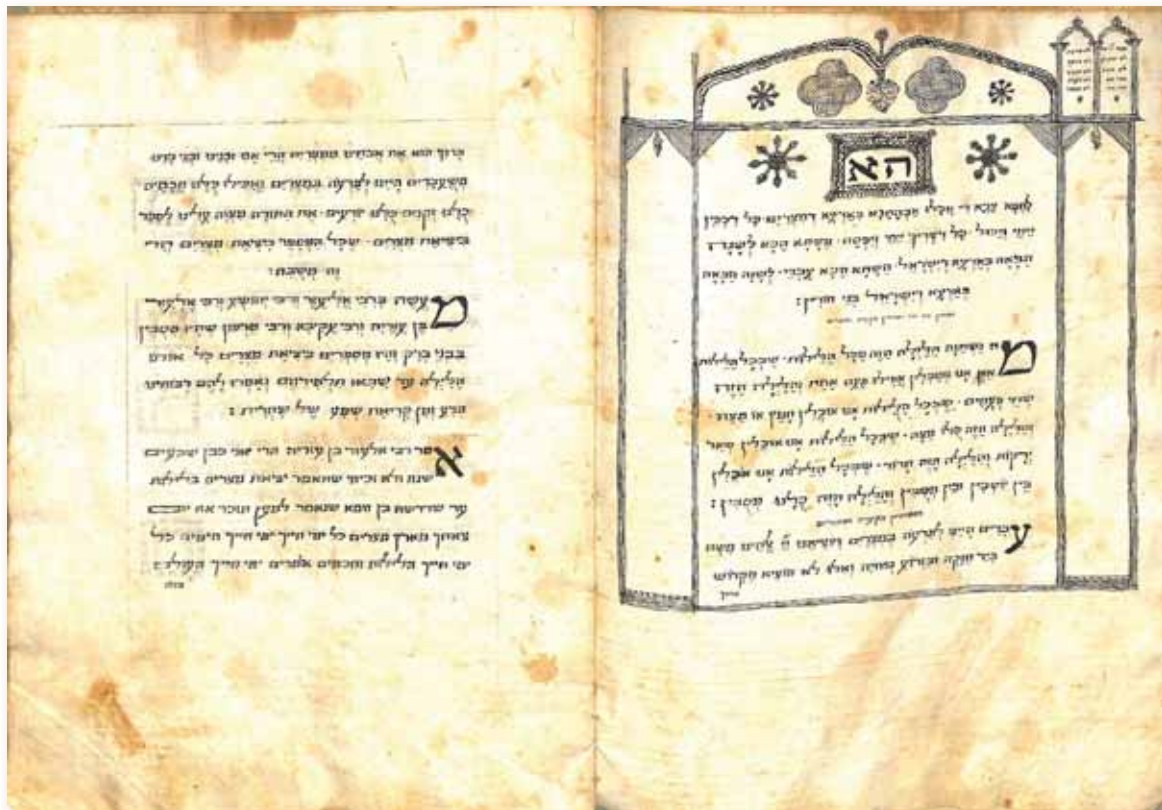 הא
לחמא עניא די אכלו אבהתנא בארעא דמצרים כל דכפין
ייתי וייכול כל דצריך ייתי ויפסח. השתא הכא לשנה
הבאה בארעא דישראל. השתא הכא עבדי. לשנה הבאה
בארעא דישראל בני חורין:
מה נשתנה הלילה הזה מכל הלילות. שבכל הלילות
אין אנו מטבילין אפילו פעם אחת והלילה הזה
שתי פעמים. שבכל הלילות אנו אוכלין חמץ או מצה
והלילה הזה כולו מצה. שבכל הלילות אנו אוכלין שאר
ירקות והלילה הזה מרור. שבכל הלילות אנו אוכלין
בין יושבין ובין מסובין והלילה הזה כולנו מסובין:
עבדים היינו לפרעה במצרים ויוציאנו יי אלהינו משם
ביד חזקה ובזרוע נטויה ואילו לא הוציא הקדוש
ברוך
ברוך הוא את אבותינו ממצרים הרי אנו ובנינו ובני בנינו
משעבדים היינו לפרעה במצרים ואפילו כלנו חכמים
כלנו נבונים כלנו יודעים. את התורה מצוה עלינו לספר
ביציאת מצרים. וכל המספר ביציאת מצרים הרי
זה משובח:
מעשה ברבי אליעזר ורבי יהושע ורבי אלעזר
בן עזריה ורבי עקיבא ורבי טרפון שהיו מסובין
בבני ברק והיו מספרים ביציאת מצרים כל אותו
הלילה עד שבאו תלמידיהם ואמרו להם רבותינו
הגיע זמן קריאת שמע של שחרית:
אמר רבי אלעזר בן עזריה הרי אני כבן שבעים
שנה ולא זכיתי שתאמר יציאת מצרים בלילות
עד שדרשה בן זומא שנאמר למען תזכר את יום
צאתך מארץ מצרים כל ימי חייך ימי חייך הימים כל
ימי חייך הלילות וחכמים אומרים ימי חייך העולם
הזה